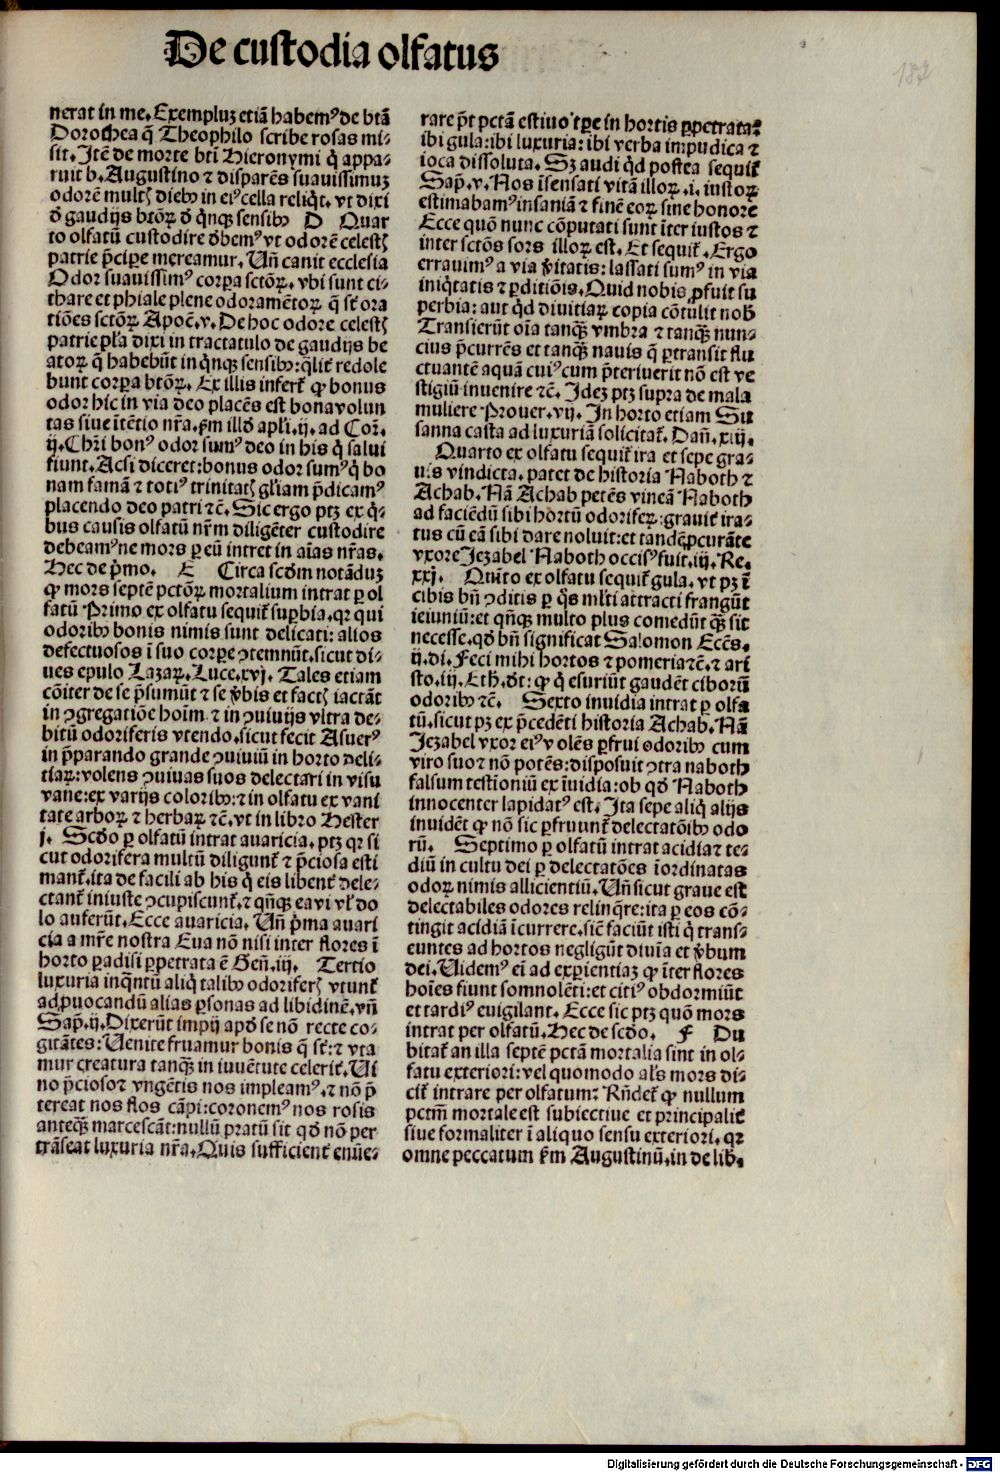 De custodia olfatus
187
nerat in me. Exempluꝫ etiā habemꝰ de btā
Dorothea q̄ Theophilo scribe rosas mi-
sit. Itē de morte bti Hieronymi q̄ appa-
ruit b. Augustino ⁊ disparēs suauissimuꝫ
odorē multꝭ diebꝰ in eiꝰ cella reliqͭ. vt dixi
ō gaudijs btōꝝ ō qͥnqꝫ sensibꝰ D Quar
to olfatū custodire ōbemꝰ vt odorē celestꝭ
patrie p̄cipere mereamur. Uñ canit ecclesia
Odor suauissimꝰ corpora sctōꝝ. vbi sunt ci-
thare et phiale plene odoramētoꝝ q̄ st̄ ora
tiões sctōꝝ Apoc̄. v. De hoc odore celestꝭ
patrie pl̄a dixi in tractatulo de gaudijs be
atoꝝ q̄ habebūt in qͥnqꝫ sensibꝰ: qͣlit̄ redole
bunt corpora btōꝝ. Ex illis infert̄ ꝙ bonus
odor hic in via deo placēs est bona volun
tas siue ītētio nr̄a. ẜm illō apl̄i. ij. ad Cor̄.
ij. Chr̄i bonꝰ odor sumꝰ deo in his qͥ salui
fiunt. Acsi diceret: bonus odor sumꝰ qͥ bo
nam famā ⁊ totiꝰ trinitatꝭ gl̄iam p̄dicamꝰ
placendo deo patri ⁊c̄. Sic ergo ptꝫ ex qͥ-
bus causis olfatū nr̄m diligēter custodire
debeamꝰ ne mors ꝑ eū intret in aīas nr̄as.
Hec de pͥmo. E Circa scōm notāduꝫ
ꝙ mors septē pctōꝝ mortalium intrat ꝑ ol
fatū Primo ex olfatu sequit̄ suꝑbia. qꝛ qui
odoribꝰ bonis nimis sunt delicati: alios
defectuosos ī suo corꝑe ꝯtemnūt. sicut di-
ues epulo Lazaꝝ. Luce. xvj. Tales etiam
cōiter de se p̄sumūt ⁊ se v̄bis et factꝭ iactāt
in ꝯgregatiōe hoīm ⁊ in ꝯuiuijs vltra de-
bitū odoriferis vtendo. sicut fecit Asuerꝰ
in p̄parando grande ꝯuiuiū in horto deli-
tiaꝝ: volens ꝯuiuas suos delectari in visu
vane: ex varijs coloribꝰ: ⁊ in olfatu ex vani
tate arboꝝ ⁊ herbaꝝ ⁊c̄. vt in libro Hester
j. Scōo ꝑ olfatū intrat auaricia. ptꝫ qꝛ si
cut odorifera multū diligunt̄ ⁊ p̄ciosa esti
mant̄. ita de facili ab his qͥ eis libent̄ dele-
ctant̄ iniuste ꝯcupiscunt̄. ⁊ qñqꝫ ea vi vl̓ do
lo auferūt. Ecce auaricia. Uñ pͥma auari
cia a mr̄e nostra Eua nō nisi inter flores ī
horto paradisi ꝑpetrata ē Geñ. iij. Tertio
luxuria inqͣntū aliqͥ talibꝰ odoriferꝭ vtunt̄
ad ꝓuocandū alias ꝑsonas ad libidinē. vñ
Sap̄. ij. Dixerūt impij apō se nō recte co-
gitātes: Uenite fruamur bonis q̄ st̄: ⁊ vta
mur creatura tanqꝫ in iuuētute celerit̄. Ui
no p̄cioso ⁊ vngētis nos impleamꝰ. ⁊ nō p̄
tereat nos flos cāpi: coronemꝰ nos rosis
anteqꝫ marcescāt: nullū pratū sit qō nō per
trāseat luxuria nr̄a. Quis sufficient̄ enūe-
rare p̄t pctā estiuo tꝑe in hortis ꝑpetrata:
ibi gula: ibi luxuria: ibi verba impudica ⁊
ioca dissoluta. Sꝫ audi qͥd postea sequit̄
Sap̄. v. Nos īsensati vitā illoꝝ .i. iustoꝝ
estimabamꝰ insaniā ⁊ finē eoꝝ sine honore
Ecce quō nunc cōputati sunt īter iustos ⁊
inter sctōs sors illoꝝ est. Et sequit̄. Ergo
errauimꝰ a via v̄itatis: lassati sumꝰ in via
iniqͥtatis ⁊ ꝑditiōis. Quid nobis ꝓfuit su
perbia: aut qͥd diuitiaꝝ copia cōtulit nob̄
Transierūt oīa tanqꝫ vmbra ⁊ tanqꝫ nun-
cius p̄currēs et tanqꝫ nauis q̄ ꝑtransit flu
ctuantē aquā cuiꝰ cum p̄terierit nō est ve
stigiū inuenire ⁊c̄. Ideꝫ ptꝫ supra de mala
muliere Prouer. vij. In horto etiam Su
sanna casta ad luxuriā solicitat̄. Dañ. xiij.
Quarto ex olfatu sequit̄ ira et sepe gra-
uis vindicta. patet de historia Naboth ⁊
Achab. Nā Achab petēs vineā Naboth
ad faciēdū sibi hortū odoriferꝝ: grauit̄ ira-
tus cū eā sibi dare noluit: et tandē ꝓcurāte
vxore Jezabel Naboth occisꝰ fuit. iij. Re.
xxj. Quīto ex olfatu sequit̄ gula. vt pꝫ ī
cibis bñ ꝯditis ꝑ qͦs ml̓ti attracti frangūt
ieiuniū: et qñqꝫ multo plus comedūt qꝫ sit
necesse. qō bñ significat Salomon Ecc̄s.
ij. di. Feci mihi hortos ⁊ pomeria ⁊c̄. ⁊ ari
sto. iij. Eth̄. ōt: ꝙ qͥ esuriūt gaudēt ciborū
odoribꝰ ⁊c̄. Sexto inuidia intrat ꝑ olfa
tū. sicut pꝫ ex p̄cedēti historia Achab. Nā
Jezabel vxor eiꝰ volēs ꝑfrui odoribꝰ cum
viro suo ⁊ nō potēs: disposuit ꝯtra naboth
falsum testīoniū ex īuidia: ob qō Naboth
innocenter lapidatꝰ est. Ita sepe aliqͥ alijs
inuidēt ꝙ nō sic ꝑfruunt̄ delectatōibꝰ odo
rū. Septimo ꝑ olfatū intrat acidia ⁊ te-
diū in cultu dei ꝑ delectatōes īordinatas
odoꝝ nimis allicientiū. Uñ sicut graue est
delectabiles odores relinqͥre: ita ꝑ eos cō-
tingit acidiā īcurrere. sic̄ faciūt isti qͥ trans-
euntes ad hortos negligūt diuīa et v̄bum
dei. Uidemꝰ eī ad exꝑientiaꝫ ꝙ īter flores
hoīes fiunt somnolēti: et citiꝰ obdormiūt
et tardiꝰ euigilant. Ecce sic ptꝫ quō mors
intrat per olfatū. Hec de scōo. F Du
bitat̄ an illa septē pctā mortalia sint in ol-
fatu exteriori: vel quomodo al̓s mors di-
cit̄ intrare per olfatum: Rñdet̄ ꝙ nullum
pctm̄ mortale est subiectiue et principalit̄
siue formaliter ī aliquo sensu exteriori. qꝛ
omne peccatum ẜm Augustinū. in de lib̄.
Digitalisierung gefördert durch die Deutsche Forschungsgemeinschaft - DFG